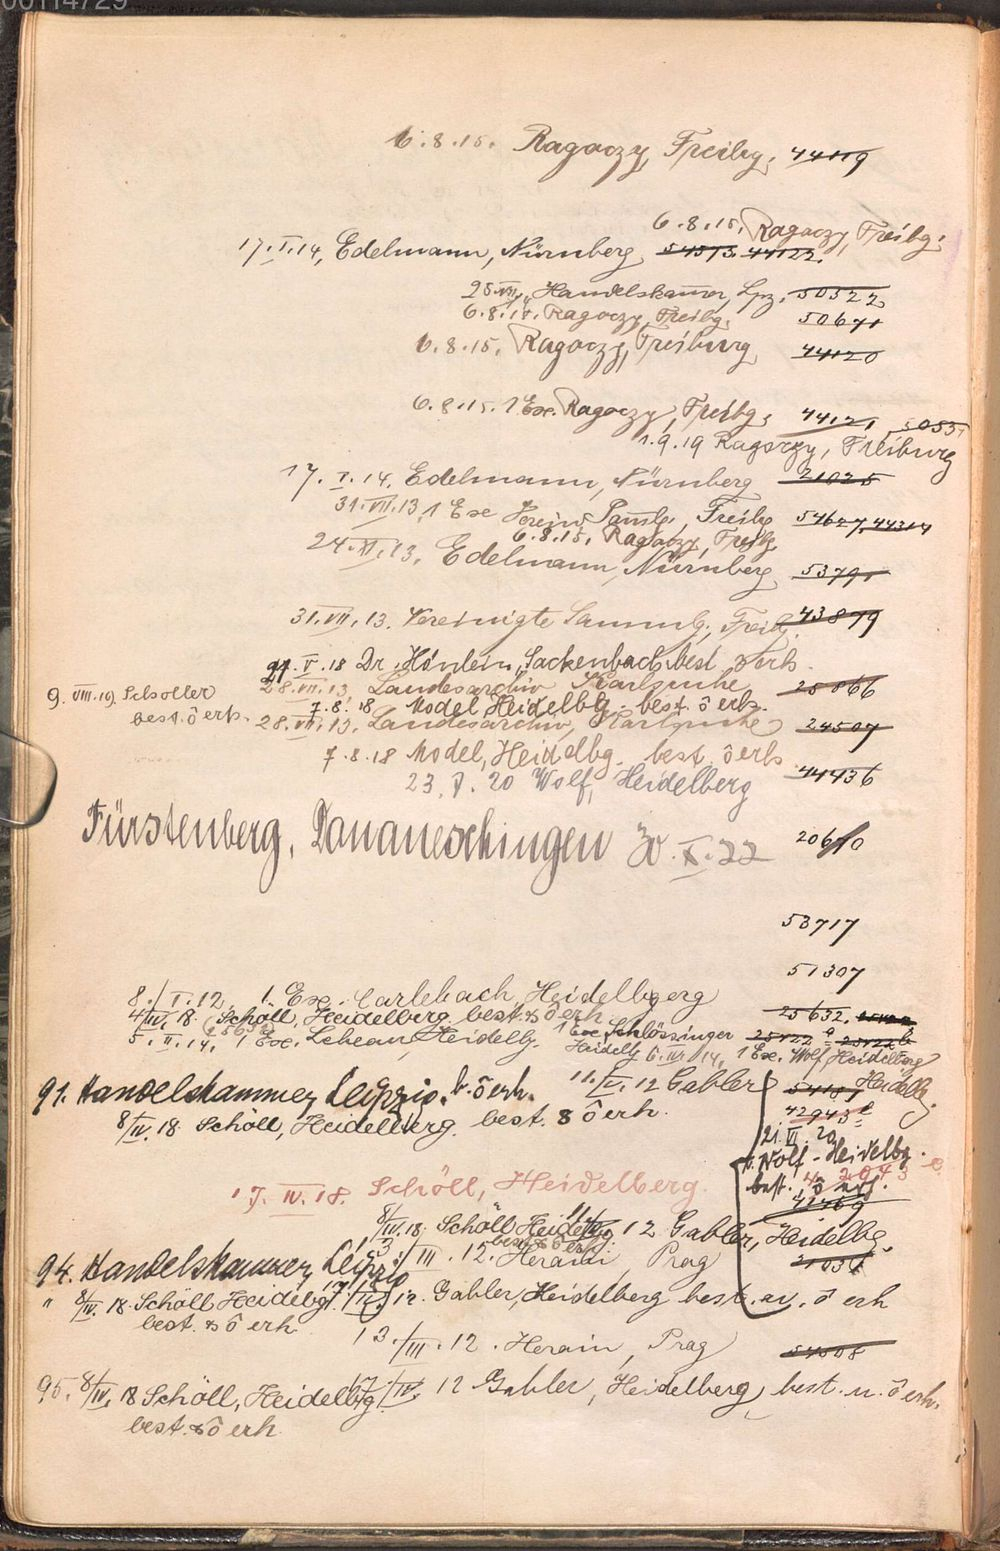 00114729
6.8.15. Ragoczy, Freibg. 44119
6.8.15. Ragoczy, Freibg.
17.I.14, Edelmann, Nürnberg 54513. 44122.
Handelskammer, Lpz. 50522
6.8.15. Ragoczy, Freibg. 50671
6.8.15. Ragoczy, Freiburg 44120
6.8.15. 1 Ex. Ragoczy, Freibg. 44121
1.9.19 Ragoczy, Freiburg
17. I. 14. Edelmann, Nürnberg 21025
31.VII.13, 1 Exe Verein. Samlg, Freibg 54627, 44314
6.8.15, Ragoczy, Freibg.
24.XI.13. Edelmann, Nürnberg 53791
31.VII.13. Vereinigte Sammlg. Freibg. 43879
V.18 Dr. Hänlein, Sackenbach best ô erh.
28.VII.13. Landesarchiv Karlsruhe 25866
9.VIII.19. Schoeller
7.8.18 Model Heidelbg. best. ô erh.
best. ô erh.
28.VII.13. Landesarchiv, Karlsruhe 24507
7.8.18 Model, Heidelbg. best. ô erh
44436
23.V.20 Wolf, Heidelberg
Fürstenberg, Donaueschingen 30.X.22 20610
53717
51307
8./I.12. 1. Exe. Carlebach, Heidelbgerg
4/IV.18. Schöll, Heidelberg best. & ô erh 25632.
5.II.14, 1 Exe. Heidelbg. 1 Exe. Schlössinger 25122
Heidelb. 14, 1 Exe. Wolf Heidelberg
91. Handelskammer Leipzig. b. ô erh. 11./IV.12 Gabler Heidelbg.
8/IV.18 Schöll, Heidelberg. best. & ô erh. 42943
21.VI.20
v. Wolf - Heidelbg.
best. ô erh.
17.IV.18. Schöll, Heidelberg.
42769
8/IV.18. Schöll Heidelbg 12 Gabler, Heidelbg.
best & ô erh.
94. Handelskammer Leipzig 13./III.12. Herain, Prag
" 8/IV.18. Schöll Heidelbg. /IV.12. Gabler, Heidelberg best. ô erh
best. & ô erh
13./III.12. Herain, Prag 54508
95. 8/IV.18 Schöll, Heidelbg. /IV.12 Gabler, Heidelberg best. u. ô erh.
best. & ô erh.